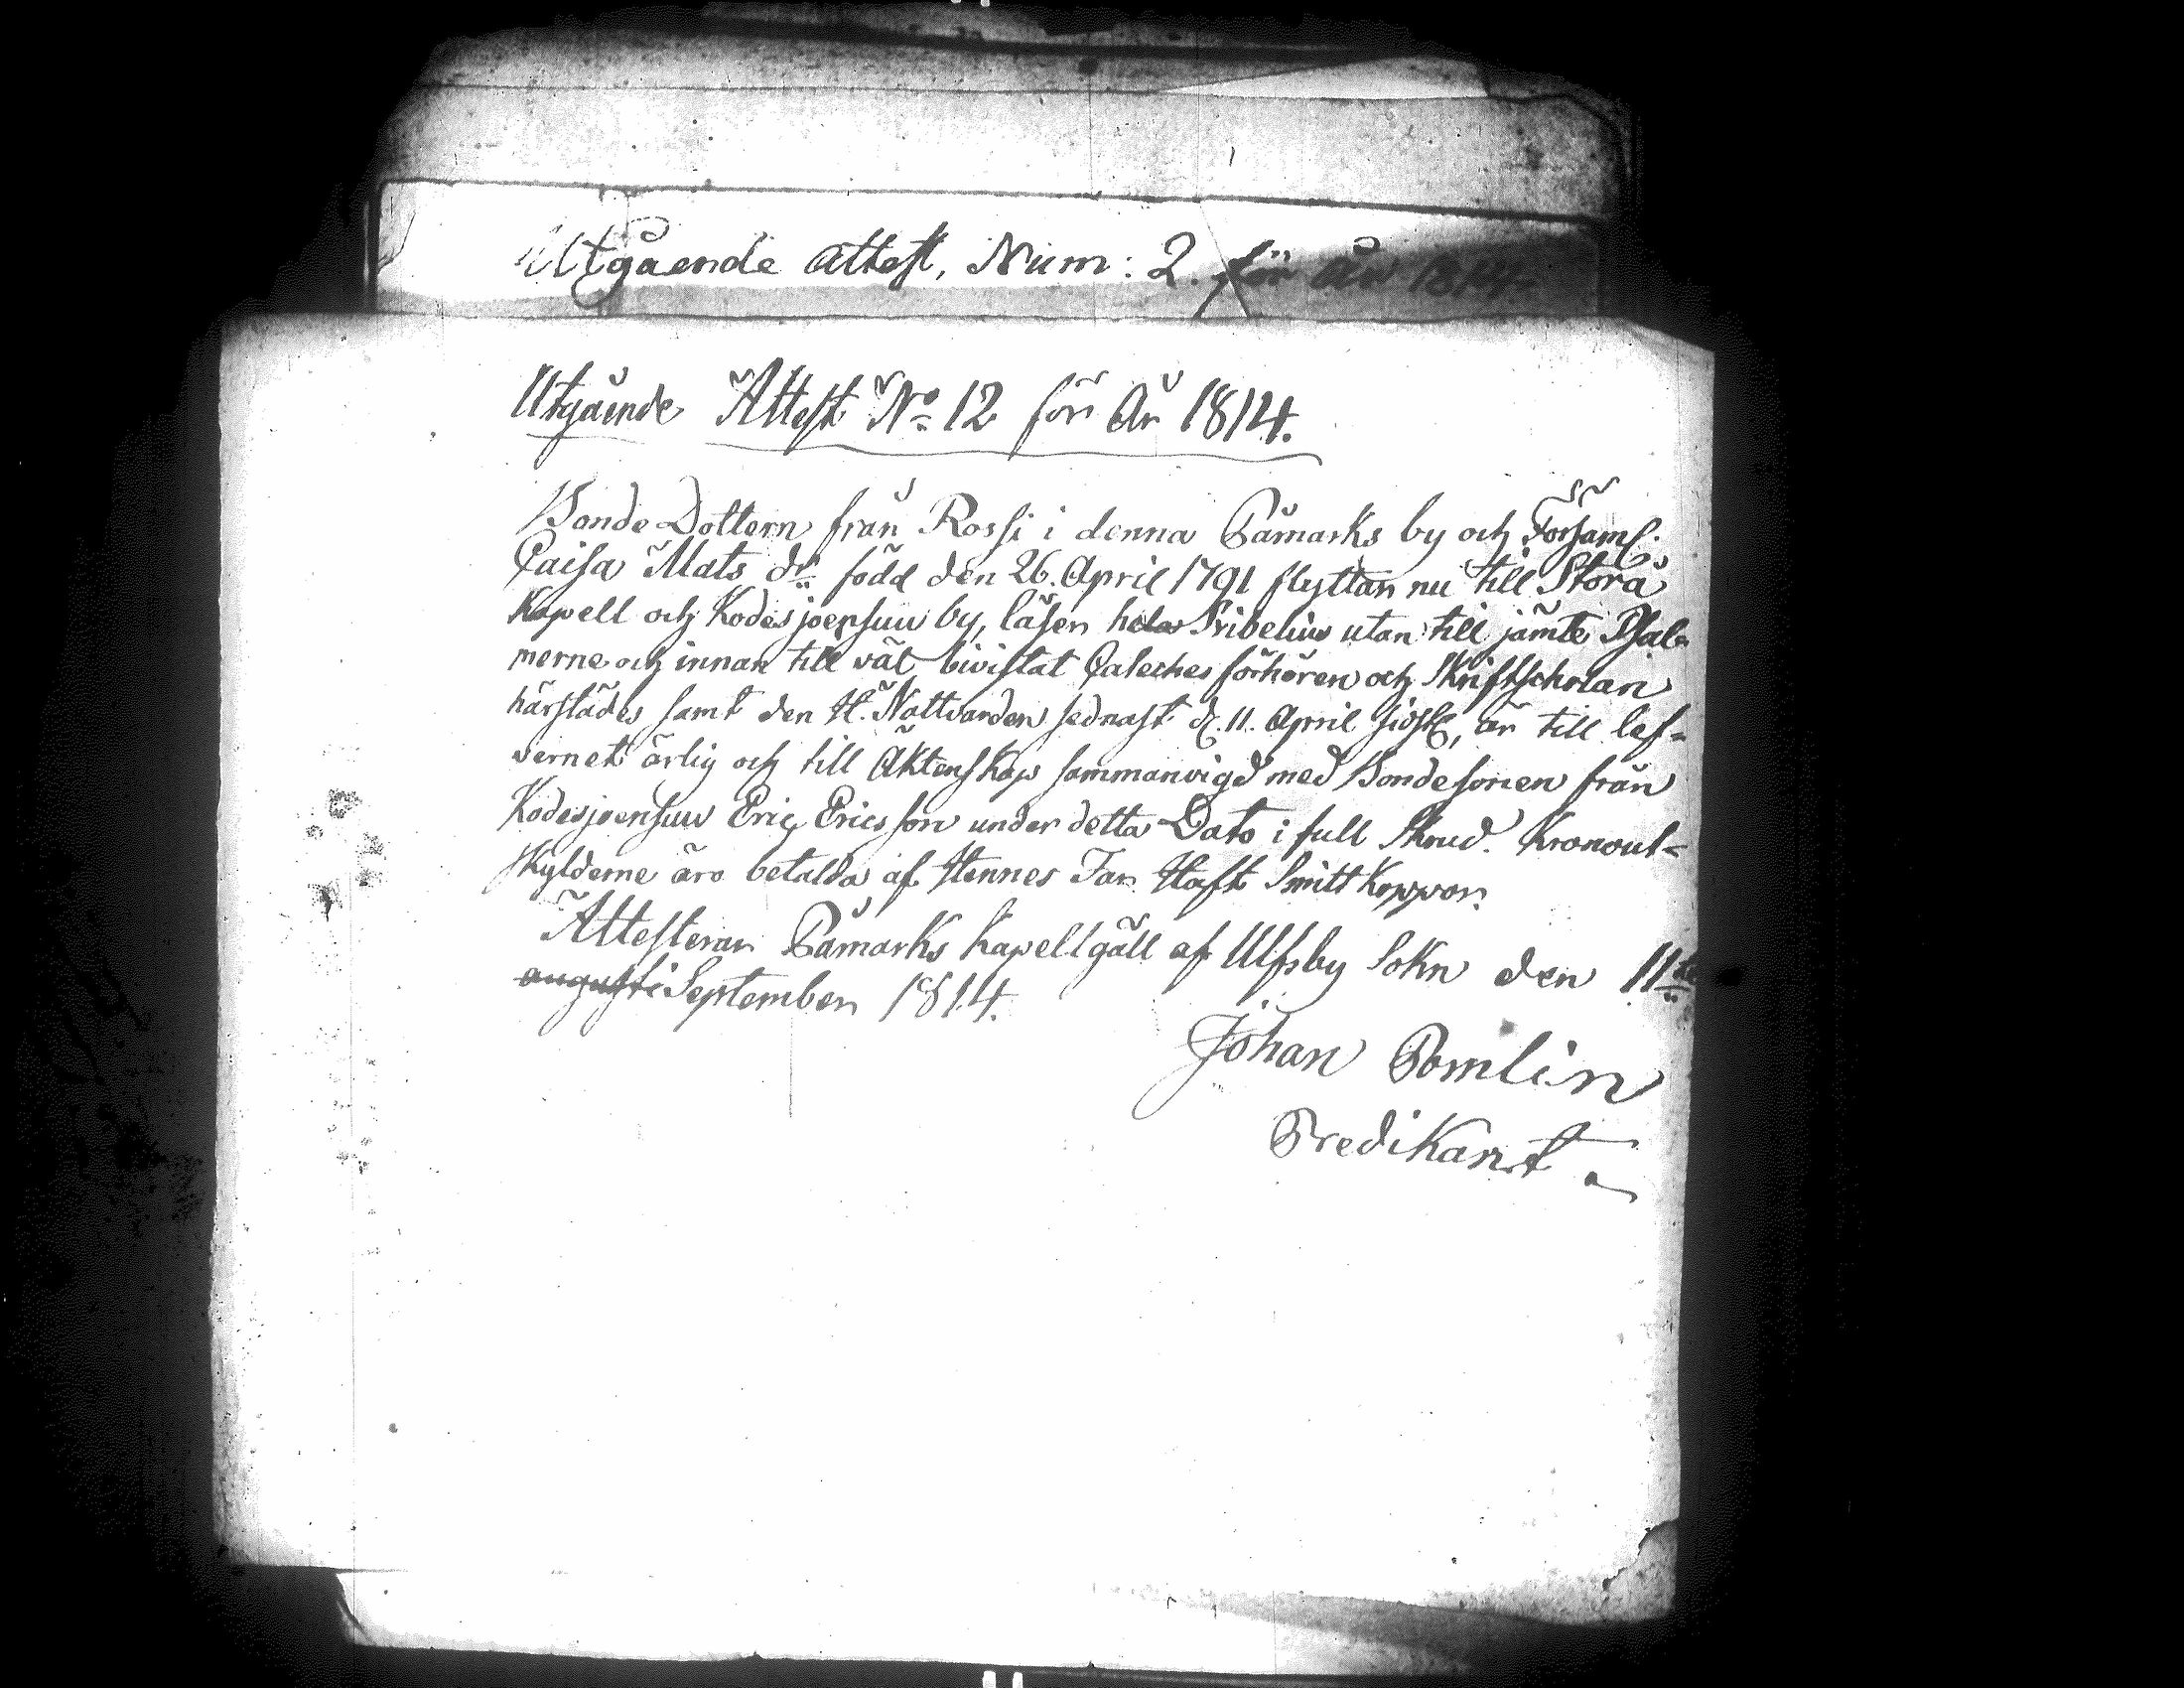 Utgående Attest, Num: 2. för år 1814.
Utgående Attest No 12 för År 1814.
Bonde Dottern från Rossi i denna Påmarks by och Församl.
Caisa Mats dr född den 26. April 1791 flyttar nu till Storå
Kapell och Kodesjoensuu by, läser hela Svibelius utan till jämte Psal-
merne och innan till väl bivistat Catechesförhören och Skriftscholan
härstädes samt den H. Nattvarden sednast d. 11. April sidstl, är till lef-
vernet ärlig och till Äktenskap sammanvigd med Bondesonen från
Kodesjoensuu Eric Ericsson under detta Dato i full Skrud. Kronout-
skylderne äro betalda af Hennes Far. Haft Smitt Koppor.
Attesterar Påmarks Kapellgäll af Ulfsby Sokn den 11te
augusti September 1814.
Johan Pomlin
Predikant